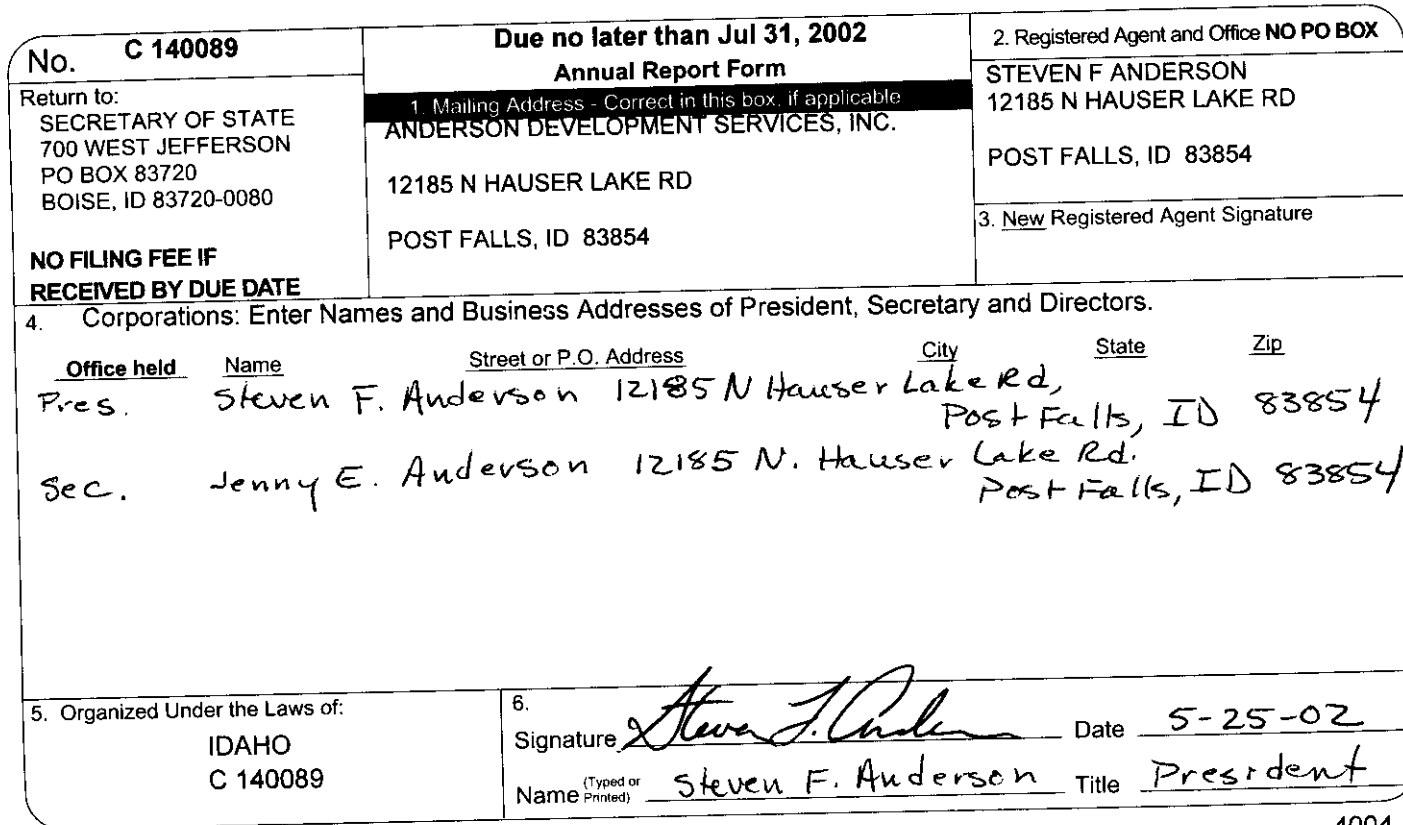 No. C 140089
Return to:
SECRETARY OF STATE
700 WEST JEFFERSON
PO BOX 83720
BOISE, ID 83720-0080
NO FILING FEE IF
RECEIVED BY DUE DATE
Due no later than Jul 31, 2002
Annual Report Form
1. Mailing Address - Correct in this box, if applicable
ANDERSON DEVELOPMENT SERVICES, INC.
12185 N HAUSER LAKE RD
POST FALLS, ID 83854
2. Registered Agent and Office NO PO BOX
STEVEN F ANDERSON
12185 N HAUSER LAKE RD
POST FALLS, ID 83854
3. New Registered Agent Signature
4. Corporations: Enter Names and Business Addresses of President, Secretary and Directors.
Office held Name Street or P.O. Address City State Zip
Pres. Steven F. Anderson 12185 N Hauser Lake Rd,
Post Falls, ID 83854
Sec. Jenny E. Anderson 12185 N. Hauser Lake Rd.
Post Falls, ID 83854
5. Organized Under the Laws of:
IDAHO
C 140089
6.
Signature X Steven F. Anderson Date 5-25-02
Name (Typed or Printed) Steven F. Anderson Title President